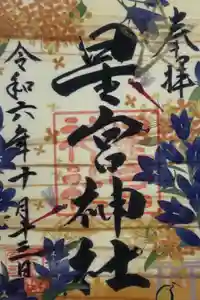 奉拝
星宮神社
令和六年十月十三日